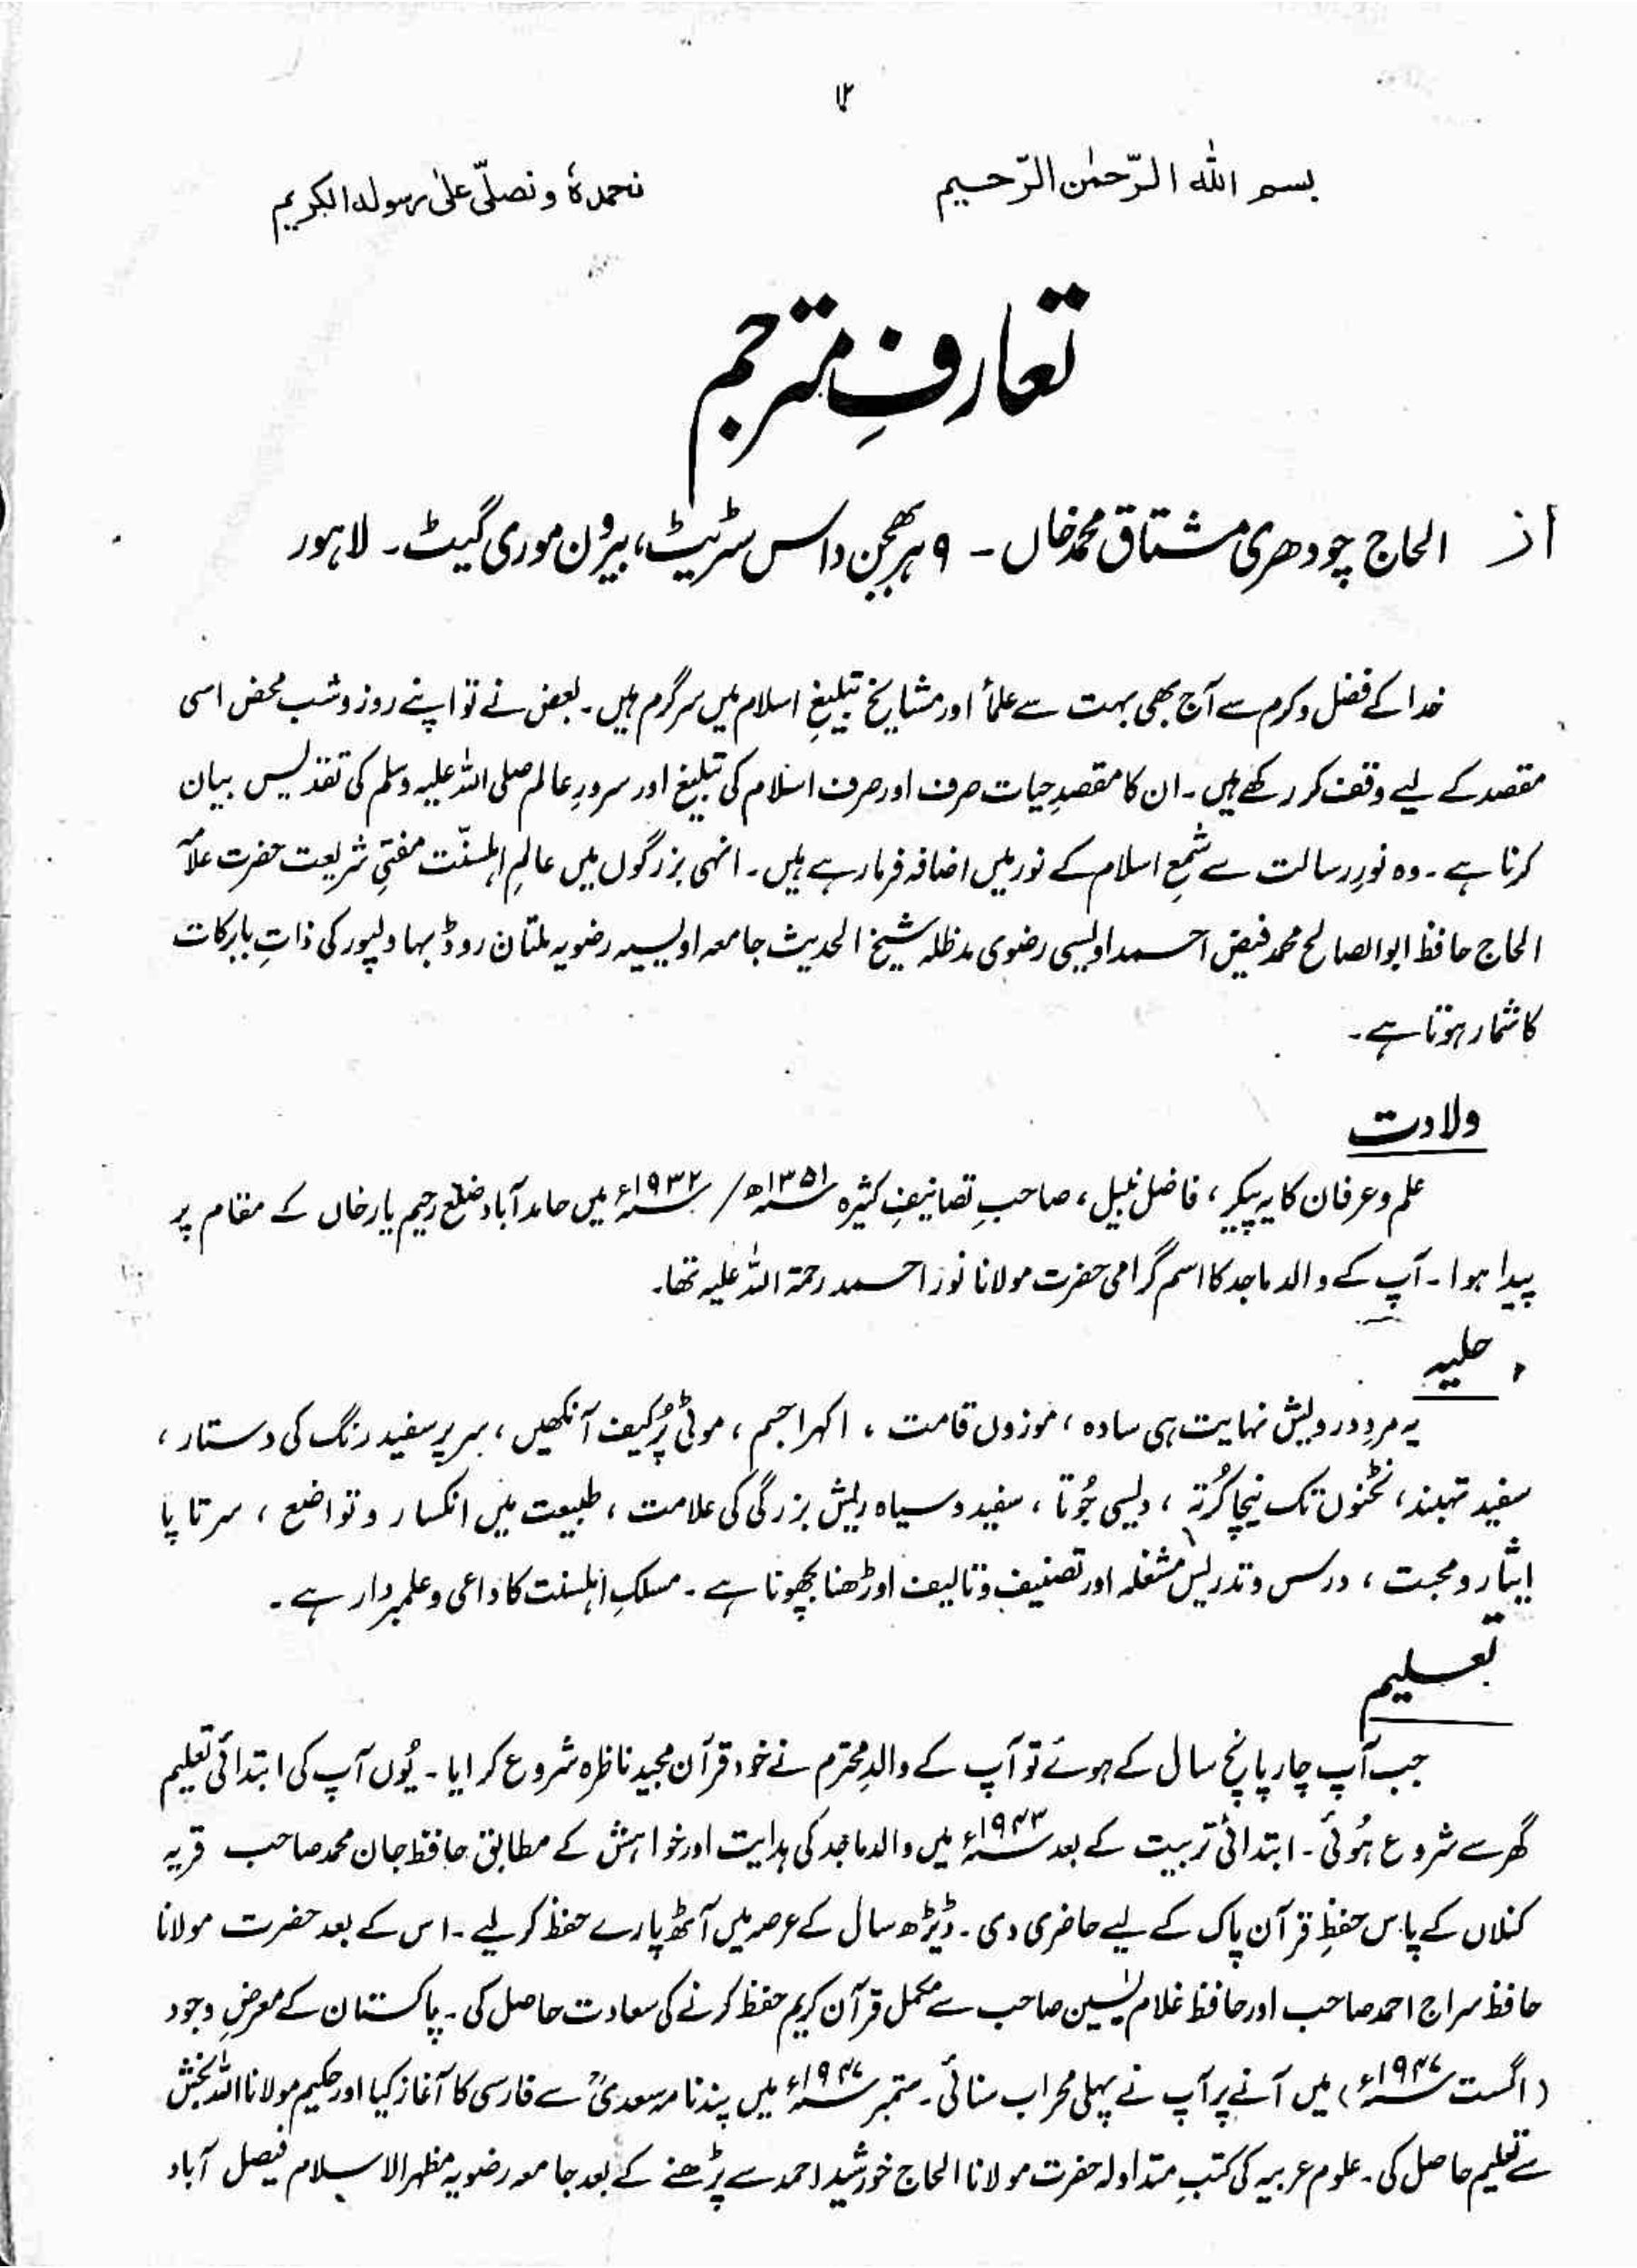 ۱۲
بسم اللہ الرّحمٰن الرّحیم
نحمدہٗ و نصلّی علیٰ رسولہ الکریم
تعارفِ مترجم
از الحاج چودھری مشتاق محمد خاں - ۹ ہربھجن داس سٹریٹ، بیرون موری گیٹ۔ لاہور
خدا کے فضل و کرم سے آج بھی بہت سے علمأ اور مشایخ تبلیغِ اسلام میں سرگرم ہیں۔ بعض نے تو اپنے روز و شب محض اسی
مقصد کے لیے وقف کر رکھے ہیں۔ ان کا مقصدِ حیات صرف اور صرف اسلام کی تبلیغ اور سرورِ عالم صلی اللہ علیہ وسلم کی تقدیس بیان
کرنا ہے۔ وہ نورِ رسالت سے شمعِ اسلام کے نور میں اضافہ فرما رہے ہیں۔ انہی بزرگوں میں عالمِ اہلسنّت مفتیِ شریعت حضرت علامہ
الحاج حافظ ابوالصالح محمد فیض احمد اویسی رضوی مدظلہ شیخ الحدیث جامعہ اویسیہ رضویہ ملتان روڈ بہاولپور کی ذاتِ بابرکات
کا شمار ہوتا ہے۔
ولادت
علم و عرفان کا یہ پیکر، فاضل نبیل، صاحبِ تصانیفِ کثیرہ ۱۳۵۱ھ/ ۱۹۳۲ء میں حامد آباد ضلع رحیم یار خاں کے مقام پر
پیدا ہوا۔ آپ کے والد ماجد کا اسم گرامی حضرت مولانا نور احمد رحمۃ اللہ علیہ تھا۔
حلیہ
یہ مردِ درویش نہایت ہی سادہ، موزوں قامت، اکہرا جسم، موٹی پُرکیف آنکھیں، سر پر سفید رنگ کی دستار،
سفید تہبند، ٹخنوں تک نیچا کُرتہ، دیسی جُوتا، سفید و سیاہ ریش بزرگی کی علامت، طبیعت میں انکسار و تواضع، سرتاپا
ایثار و محبت، درس و تدریس مشغلہ اور تصنیف و تالیف اوڑھنا بچھونا ہے۔ مسلکِ اہلسنت کا داعی و علمبردار ہے۔
تعلیم
جب آپ چار پانچ سال کے ہوئے تو آپ کے والدِ محترم نے خود قرآن مجید ناظرہ شروع کرایا۔ یُوں آپ کی ابتدائی تعلیم
گھر سے شروع ہُوئی۔ ابتدائی تربیت کے بعد ۱۹۴۳ء میں والد ماجد کی ہدایت اور خواہش کے مطابق حافظ جان محمد صاحب قریہ
کنلاں کے پاس حفظِ قرآن پاک کے لیے حاضری دی۔ ڈیڑھ سال کے عرصہ میں آٹھ پارے حفظ کر لیے۔ اس کے بعد حضرت مولانا
حافظ سراج احمد صاحب اور حافظ غلام یٰسین صاحب سے مکمل قرآن کریم حفظ کرنے کی سعادت حاصل کی۔ پاکستان کے معرضِ وجود
(اگست ۱۹۴۷ء) میں آنے پر آپ نے پہلی محراب سنائی۔ ستمبر ۱۹۴۷ء میں پندنامہ سعدیؒ سے فارسی کا آغاز کیا اور حکیم مولانا اللہ بخش
سے تعلیم حاصل کی۔ علوم عربیہ کی کتبِ متداولہ حضرت مولانا الحاج خورشید احمد سے پڑھنے کے بعد جامعہ رضویہ مظہر الاسلام فیصل آباد